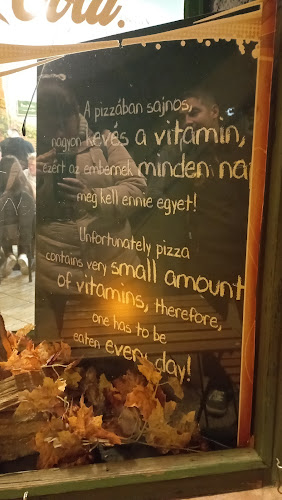 Cola.
A pizzában sajnos,
nagyon kevés a vitamin,
ezért az embernek minden nap
meg kell ennie egyet!
Unfortunately pizza
contains very small amount
of vitamins, therefore,
one has to be
eaten every day!